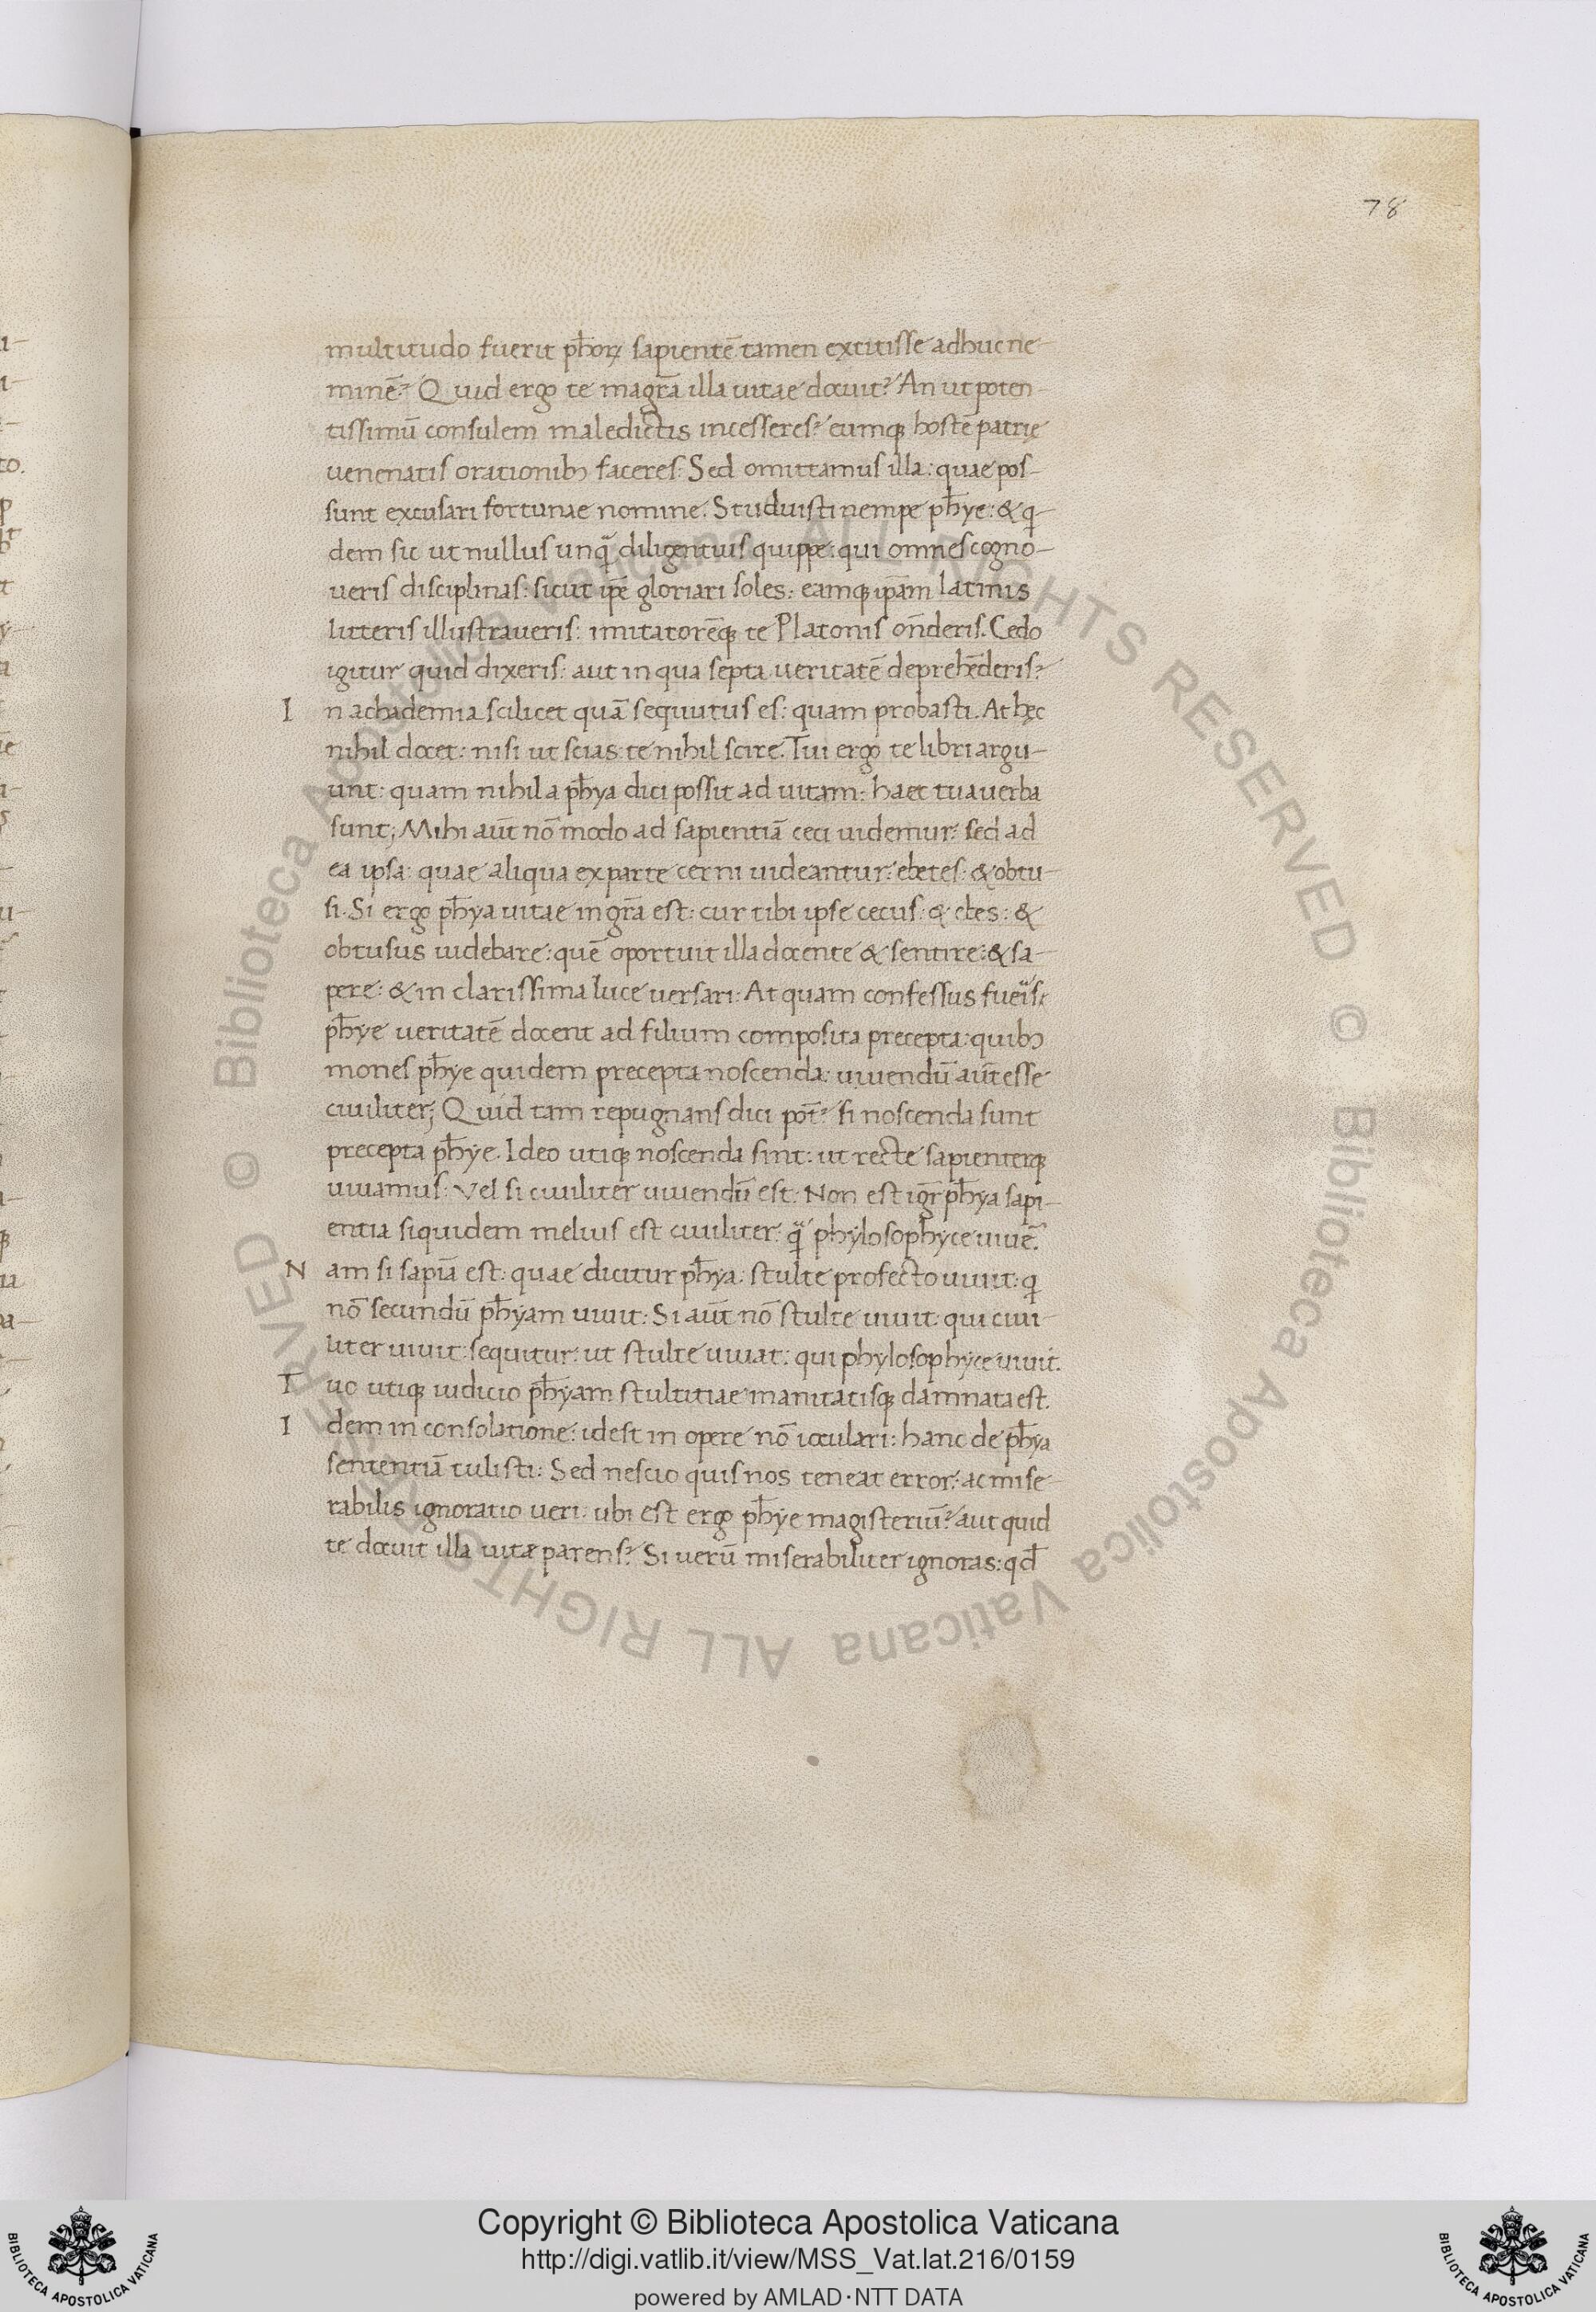 78
multitudo fuerit ph̄oꝝ sapientē tamen extitisse adhuc ne-
minē? Quid ergo te magr̄a illa uitae docuit? An ut poten-
tissimū consulem maledictis incesseres? eumqꝫ hostē patrię
uenenatis orationibꝫ faceres: Sed omittamus illa: quae pos-
sunt excusari fortunae nomine. Studuisti nempe ph̄ye: & q-
dem sic ut nullus unqᷓ diligentius quippe: qui omnes cogno-
ueris disciplinas: sicut ip̄e gloriari soles: eamqꝫ ip̄am latinis
litteris illustraueris: imitatorēqꝫ te Platonis on̄deris. Cedo
igitur quid dixeris: aut in qua septa ueritatē deprehēderis?
In achademia scilicet quā sequutus es: quam probasti. At hęc
nihil docet: nisi ut scias te nihil scire. Tui ergo te libri argu-
unt: quam nihil a ph̄ya dici possit ad uitam: haec tua uerba
sunt; Mihi aūt nō modo ad sapientiā ceci uidemur: sed ad
ea ipsa: quae aliqua ex parte cerni uideantur: ebetes: & obtu-
si. Si ergo ph̄ya uitae mgr̄a est: cur tibi ipse cecus: & ebes: &
obtusus uidebare: quē oportuit illa docente & sentire: & sa-
pere: & in clarissima luce uersari: At quam confessus fueris
ph̄ye ueritatē docent ad filium composita precepta: quibꝫ
mones ph̄ye quidem precepta noscenda: uiuendū aūt esse
ciuiliter; Quid tam repugnans dici pōt? si noscenda sunt
precepta ph̄ye. Ideo utiqꝫ noscenda sint: ut recte sapienterqꝫ
uiuamus: Vel si ciuiliter uiuendū est: Non est igr̄ ph̄ya sapi-
entia siquidem melius est ciuiliter: qᷓ phylosophyce uiuē.
Nam si sapiā est: quae dicitur ph̄ya: stulte profecto uiuit: q
nō secundū ph̄yam uiuit: Si aūt nō stulte uiuit: qui ciui-
liter uiuit: sequitur: ut stulte uiuat: qui phylosophyce uiuit.
Tuo utiqꝫ iudicio ph̄yam stultitiae inanitatisqꝫ damnata est.
Idem in consolatione: idest in opere nō ioculari: hanc de ph̄ya
sententiā tulisti: Sed nescio quis nos teneat error: ac mise-
rabilis ignoratio ueri: ubi est ergo ph̄ye magisteriū? aut quid
te docuit illa uitæ parens? Si uerū miserabiliter ignoras: qd̄
© Biblioteca Apostolica Vaticana ALL RIGHTS RESERVED
© Biblioteca Apostolica Vaticana ALL RIGHTS RESERVED
Copyright © Biblioteca Apostolica Vaticana
http://digi.vatlib.it/view/MSS_Vat.lat.216/0159
powered by AMLAD·NTT DATA
BIBLIOTECA APOSTOLICA VATICANA
BIBLIOTECA APOSTOLICA VATICANA